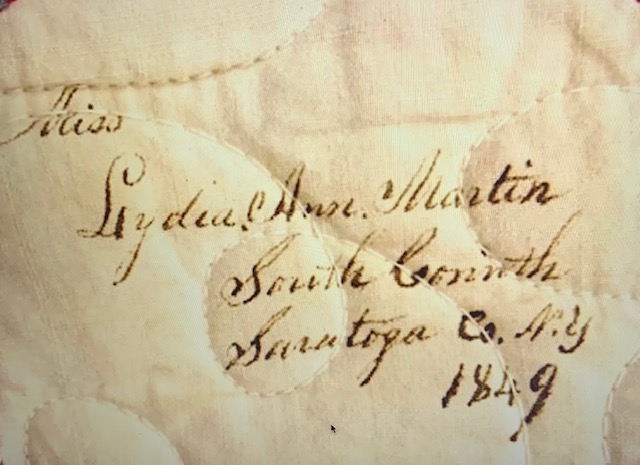 Miss
Lydia Ann. Martin
South Corinth
Saratoga Co. N.Y
1849